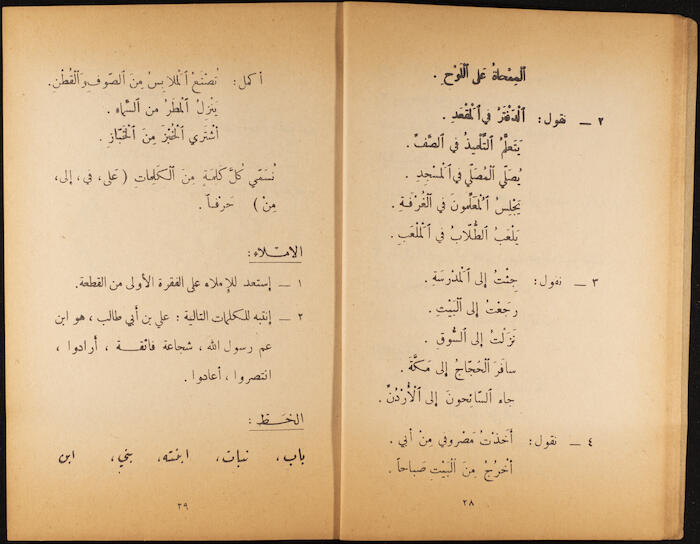 المِمْحاةُ عَلى اللَّوْحِ .
٢ ــ نقول : الدَّفْتَرُ في المَقْعَدِ .
يَتَعلَّمُ التِّلْميذُ في الصَّفِّ .
يُصَلّي المُصَلّي في المَسْجِدِ .
يَجْلِسُ المُعَلِّمونَ في الغُرْفَةِ .
يَلْعَبُ الطُّلّابُ في المَلْعَبِ .
٣ ــ نقول : جِئْتُ إلى المَدْرَسَةِ .
رَجَعْتُ إلى البَيْتِ .
نَزَلْتُ إلى السُّوقِ .
سافَرَ الحُجّاجُ إلى مَكَّةَ .
جاء السّائِحونَ إلى الأُرْدُنِّ .
٤ ــ نقول : أَخَذْتُ مَصْروفي مِنْ أبي .
أَخْرُجُ مِنَ البَيْتِ صَباحاً .
٢٨
أكمل : تُصْنَعُ المَلابِسُ مِنَ الصّوفِ وَالقُطْنِ .
يَنْزِلُ المَطَرُ من السَّماء .
أَشْتَري الخُبْزَ مِنَ الخَبّازِ .
نُسَمّي كُلَّ كَلِمَةٍ مِنَ الكَلِماتِ ( عَلى ، في ، إلى ،
مِنْ ) حَرفاً .
الاملاء :
١ ــ إستعد للإملاء على الفقرة الأولى من القطعة .
٢ ــ إنتبه للكلمات التالية : علي بن أبي طالب ، هو ابن
عم رسول الله ، شجاعة فائقة ، أرادوا ،
انتصروا ، أعادوا .
الخط :
باب ، نبات ، ابنته ، بني ، ابن
٢٩